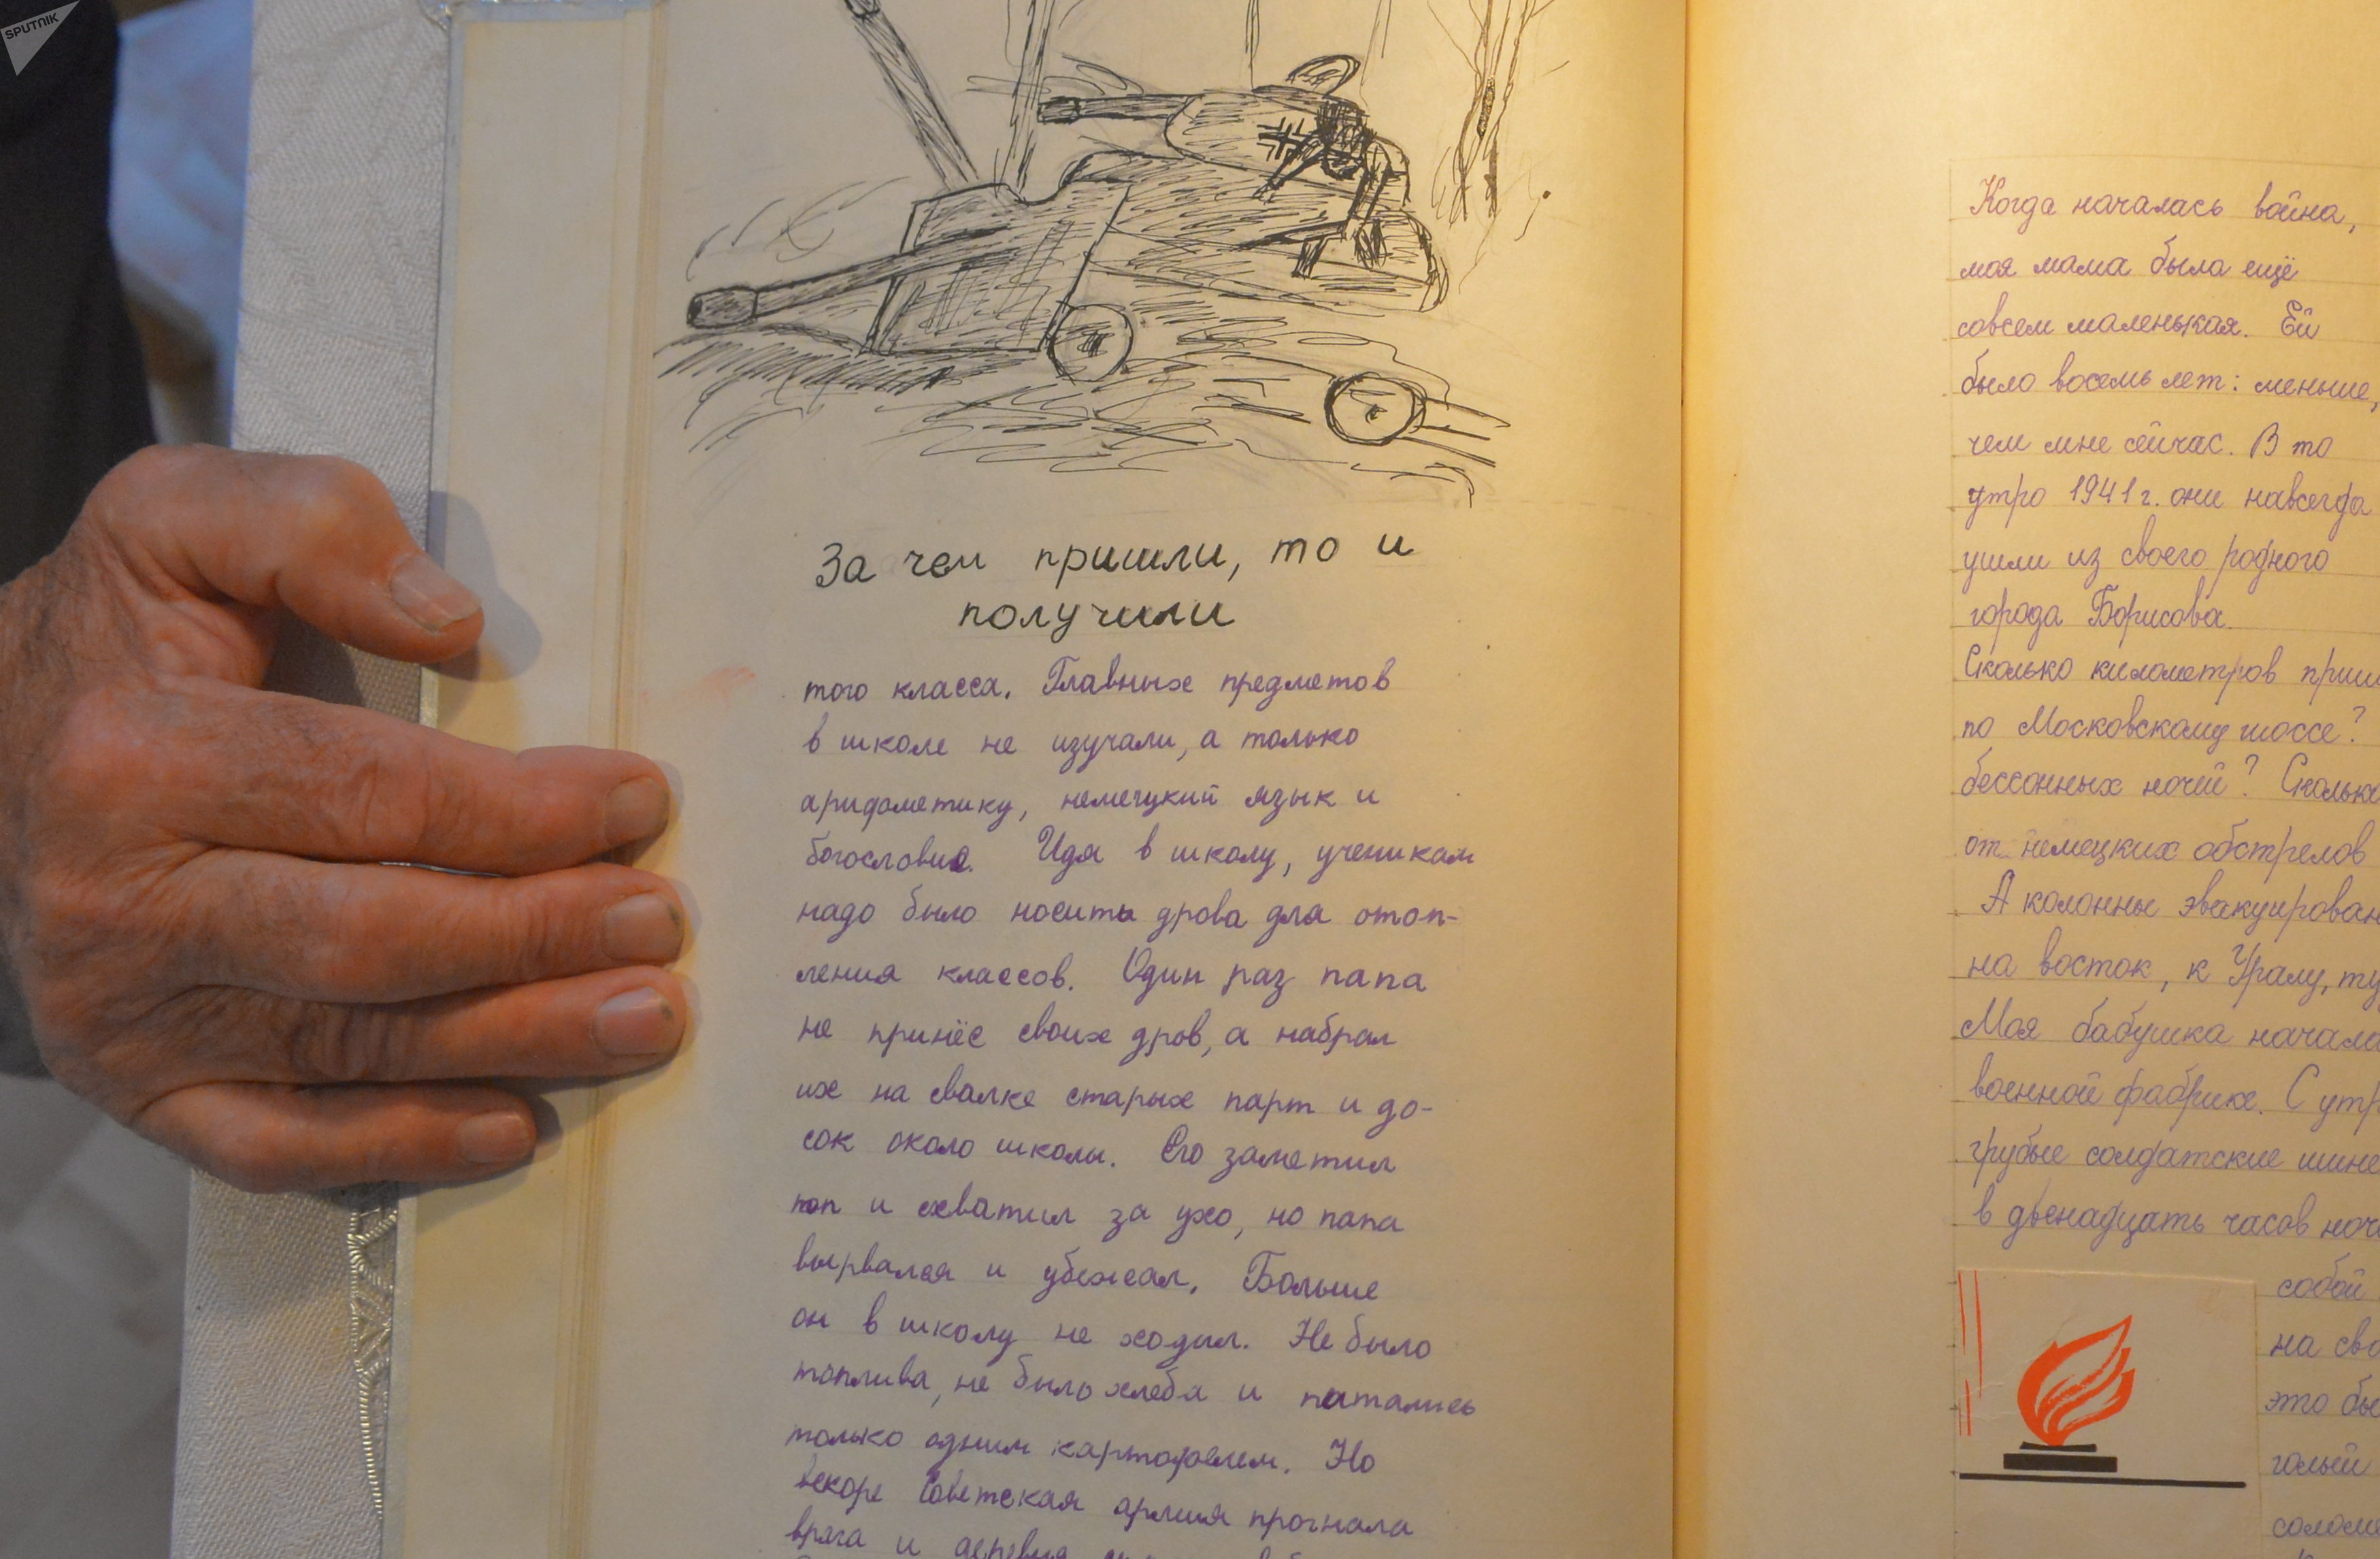 SPUTNIK
За чем пришли, то и
получили
того класса. Главных предметов
в школе не изучали, а только
арифметику, немецкий язык и
богословие. Идя в школу, ученикам
надо было носить дрова для отоп-
ления классов. Один раз папа
не принёс своих дров, а набрал
их на свалке старых парт и до-
сок около школы. Его заметил
поп и схватил за ухо, но папа
вырвался и убежал. Больше
он в школу не ходил. Не было
топлива, не было хлеба и питались
только одним картофелем. Но
вскоре Советская армия прогнала
врага и деревня
Когда началась война,
моя мама была ещё
совсем маленькая. Ей
было восемь лет: меньше,
чем мне сейчас. В то
утро 1941 г. они навсегда
ушли из своего родного
города Борисова.
Сколько километров приш
по Московскому шоссе?
бессонных ночей? Скольк
от немецких обстрелов
А колонны эвакуирован
на восток, к Уралу, ту
Моя бабушка начала
военной фабрике. С утр
грубые солдатские шине
в двенадцать часов ноч
собой
на сво
это бы
голый
солом